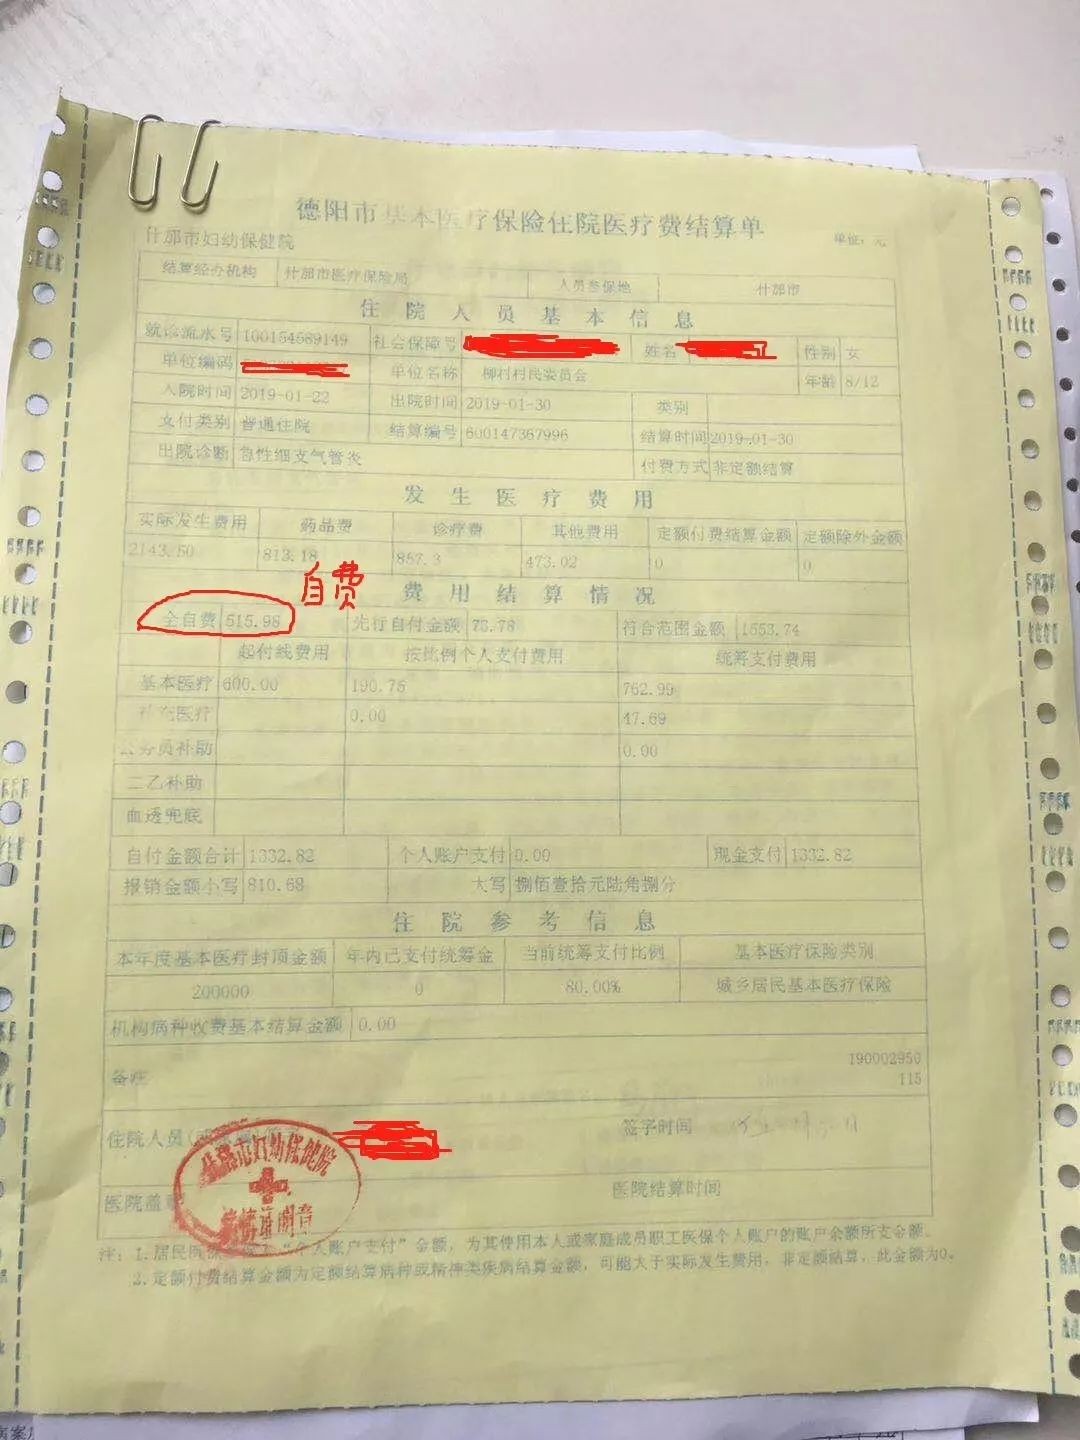 德阳市基本医疗保险住院医疗费结算单
什邡市妇幼保健院 单位：元
结算经办机构 什邡市医疗保险局 人员参保地 什邡市
住院人员基本信息
就诊流水号 100154689149 社会保障号 姓名 性别 女
单位编码 单位名称 柳村村民委员会 年龄 8/12
入院时间 2019-01-22 出院时间 2019-01-30 类别
支付类别 普通住院 结算编号 600147367996 结算时间 2019-01-30
出院诊断 急性细支气管炎 付费方式 非定额结算
发生医疗费用
实际发生费用 药品费 诊疗费 其他费用 定额付费结算金额 定额除外金额
2143.50 813.18 857.3 473.02 0 0
自费
费用结算情况
全自费 515.98 先行自付金额 73.78 符合范围金额 1553.74
起付线费用 按比例个人支付费用 统筹支付费用
基本医疗 600.00 190.75 762.99
补充医疗 0.00 47.69
公务员补助 0.00
二乙补助
血透兜底
自付金额合计 1332.82 个人账户支付 0.00 现金支付 1332.82
报销金额小写 810.68 大写 捌佰壹拾元陆角捌分
住院参考信息
本年度基本医疗封顶金额 年内已支付统筹金 当前统筹支付比例 基本医疗保险类别
200000 0 80.00% 城乡居民基本医疗保险
机构病种收费基本结算金额 0.00
备注 190002950
115
住院人员 签字时间
医院盖 医院结算时间
什邡市妇幼保健院
证明章
注：1.居民医 "个人账户支付"金额，为其使用本人或家庭成员职工医保个人账户的账户余额所支金额。
2.定额付费结算金额为定额结算病种或精神类疾病结算金额，可能大于实际发生费用，非定额结算，此金额为0。